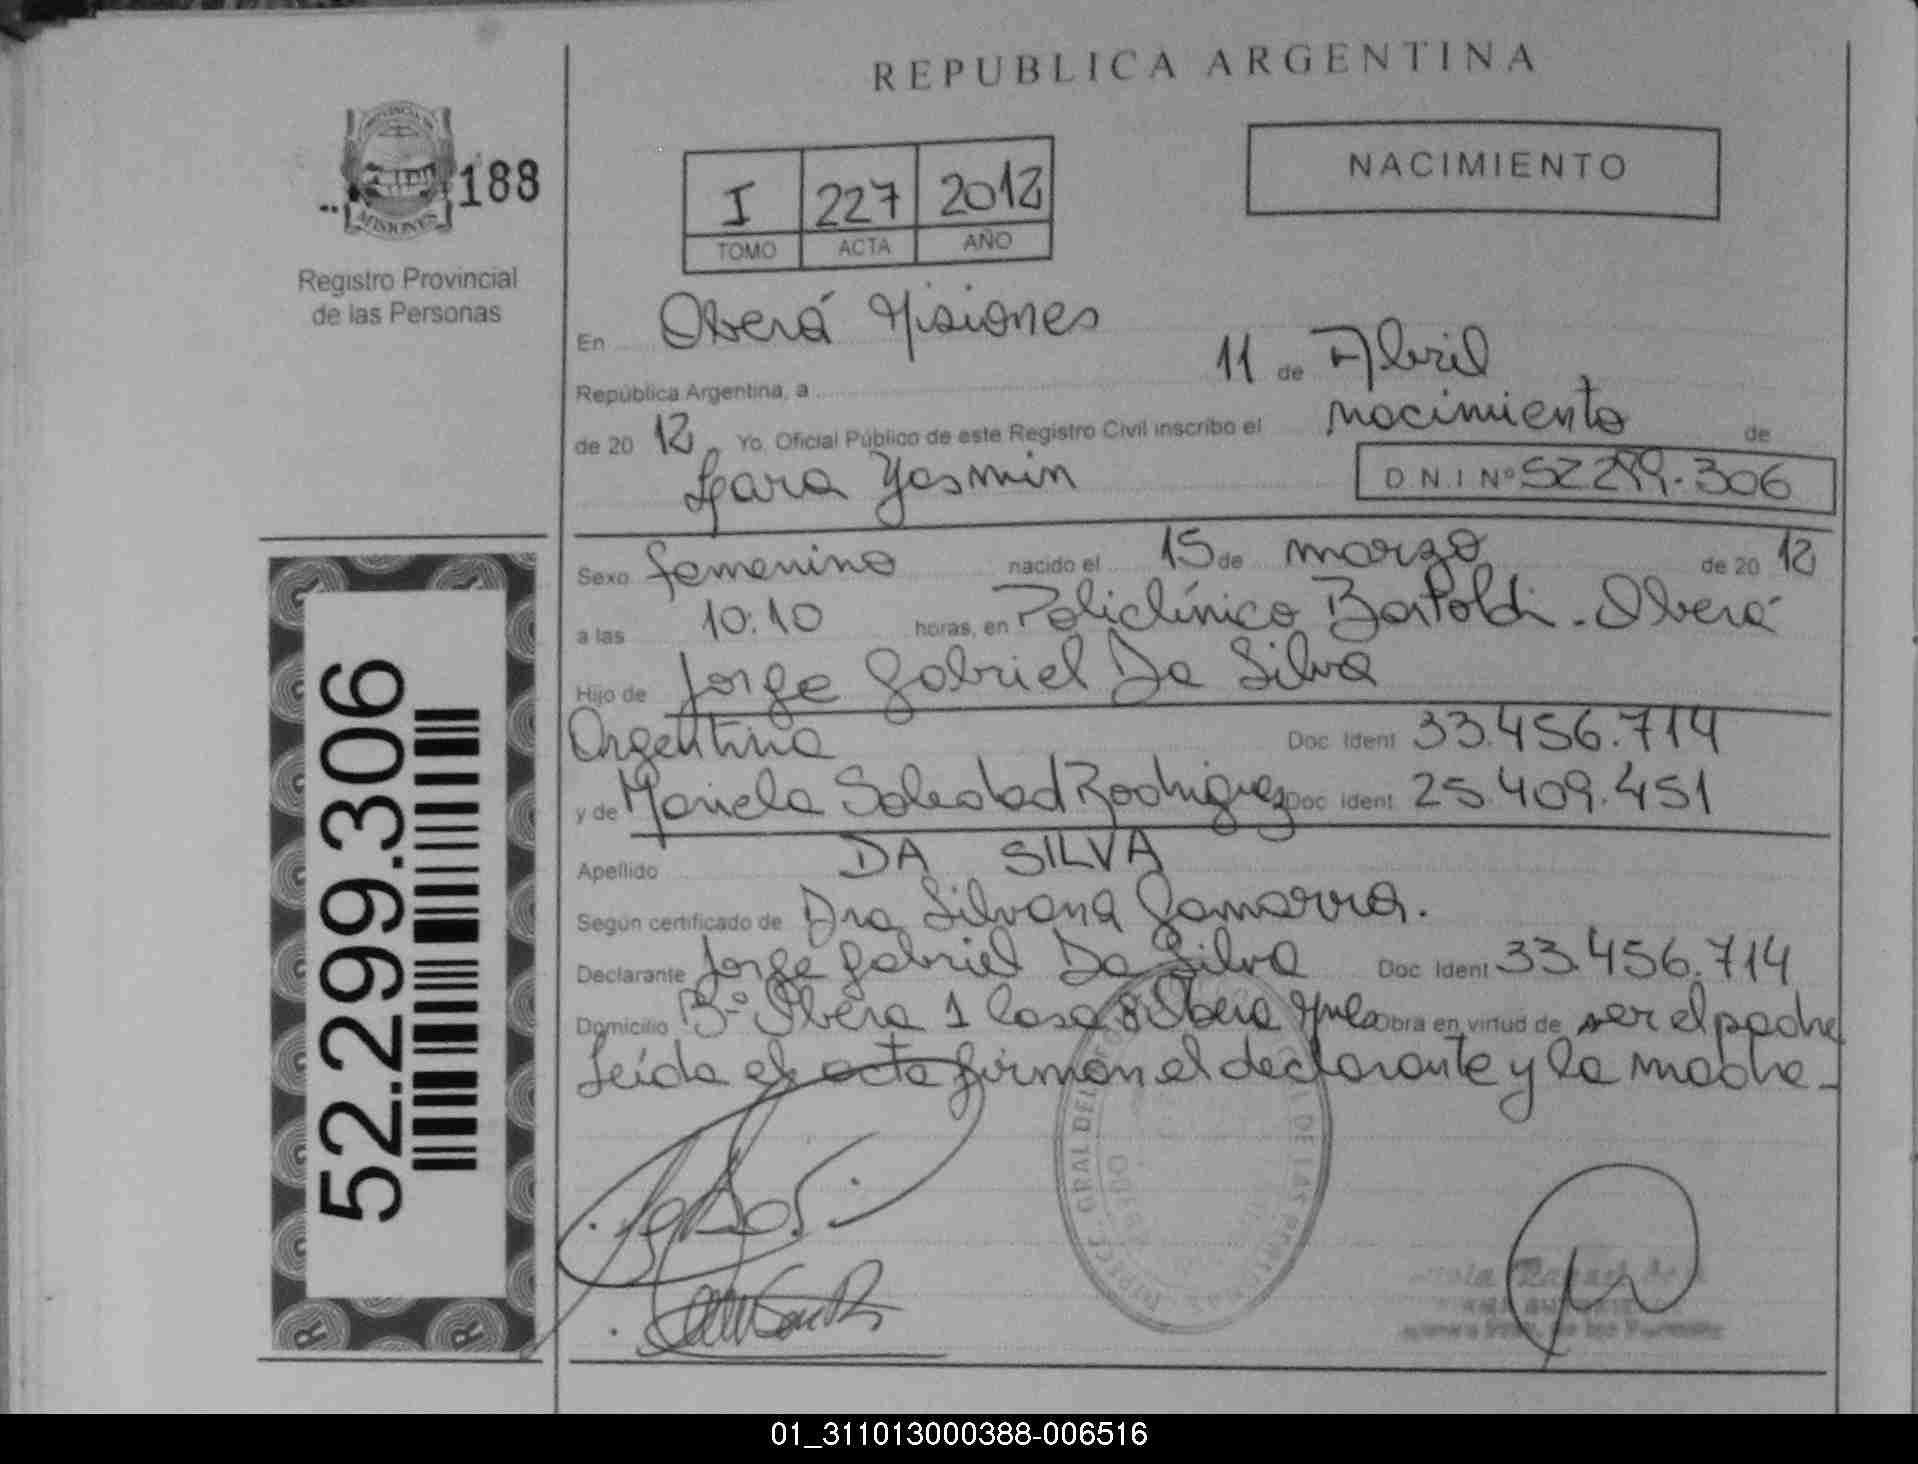 REPUBLICA ARGENTINA
PROVINCIA DE
MISIONES
188
Registro Provincial
de las Personas
I 227 2012
TOMO ACTA AÑO
NACIMIENTO
En Oberá Misiones
República Argentina, a 11 de Abril
de 20 12 Yo, Oficial Público de este Registro Civil inscribo el nacimiento de
Lara Yasmin D N.I Nº 52 299.306
Sexo femenino nacido el 15 de marzo de 20 12
a las 10:10 horas, en Policlínico Bartoldi - Oberá
Hijo de Jorge Gabriel Da Silva
Argentina Doc Ident 33.456.714
y de Mariela Soledad Rodriguez Doc Ident 25.409.451
Apellido DA SILVA
Según certificado de Dra Silvana Gamarra.
Declarante Jorge Gabriel Da Silva Doc Ident 33.456.714
Domicilio Bº Obera 1 Casa 8 Obera Mnes Obra en virtud de ser el padre
Leída el acta firman el declarante y la madre -
52.299.306
R R
DE LAS PERSONAS
01_311013000388-006516